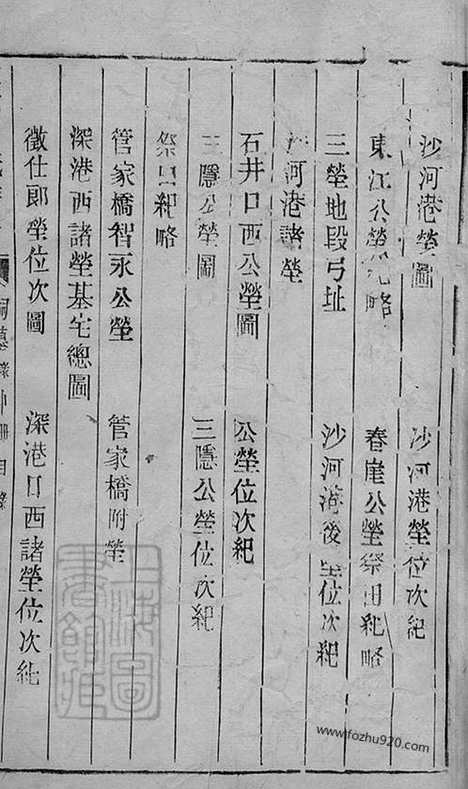 沙河港塋圖 沙河港塋位次紀
東江公塋 略 春崖公塋祭田紀略
三塋地段弓址 沙河港後 位次紀
河港諸塋
石井口西公塋圖 公塋位次紀
三隱公塋圖 三隱公塋位次紀
祭田紀略
管家橋智永公塋 管家橋附塋
深港西諸塋基宅總圖
徵仕郎塋位次圖 深港口西諸塋位次紀
上海圖書館藏
www.fozhu920.com